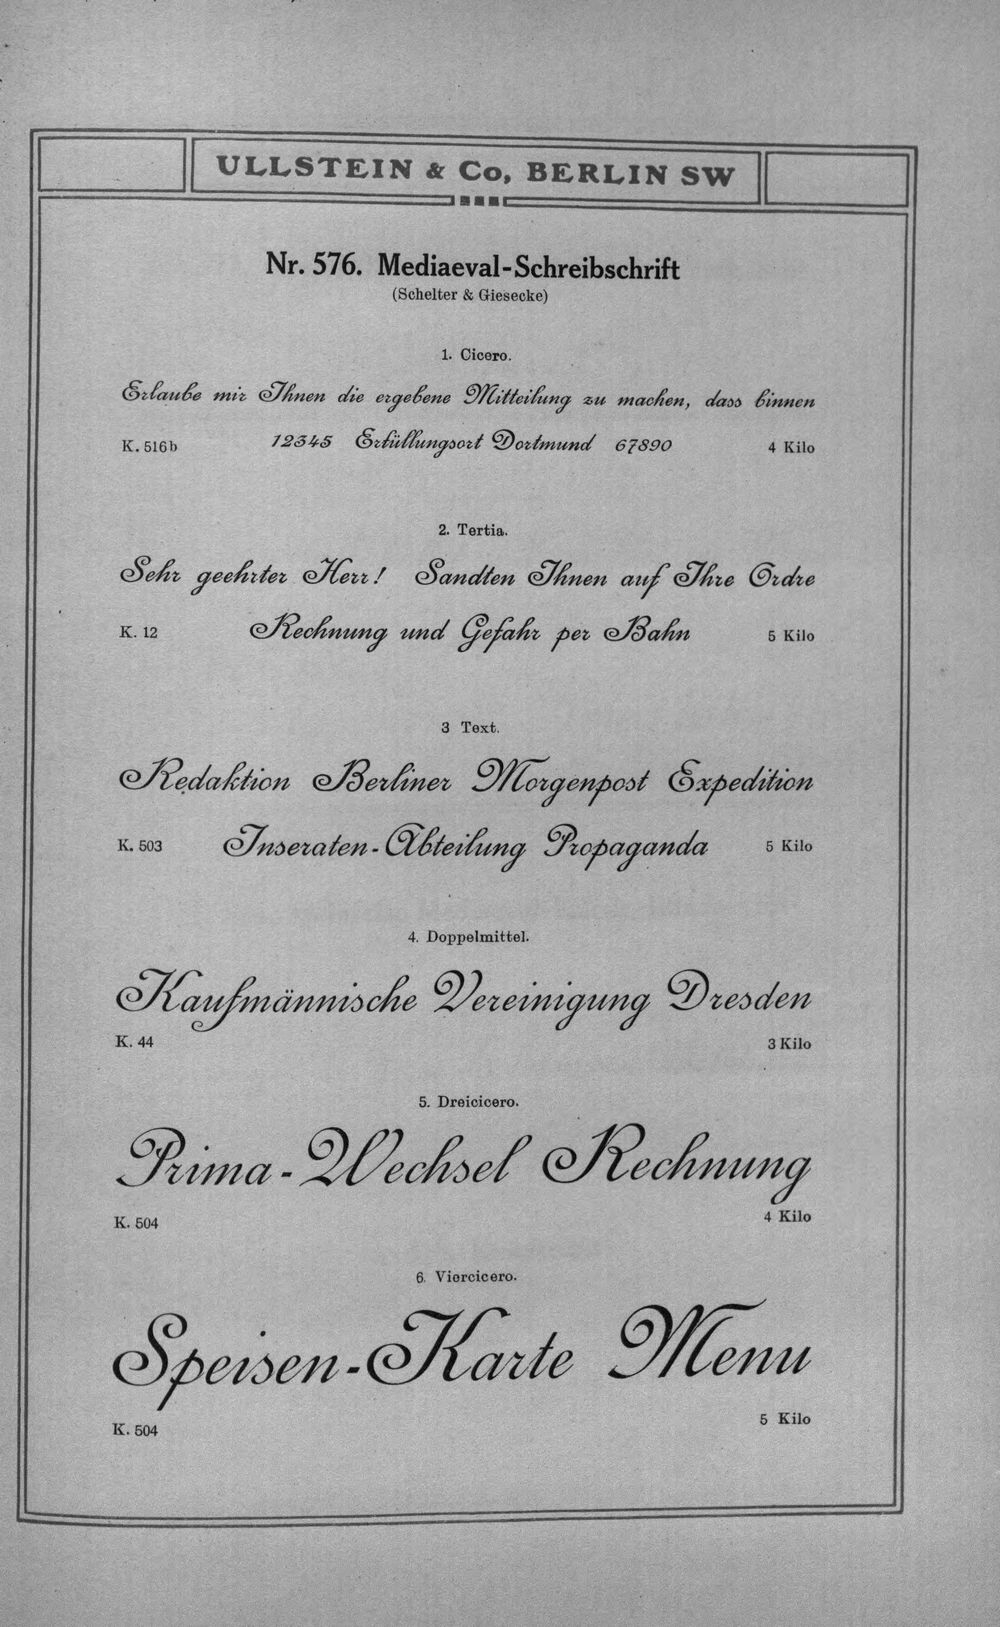 ULLSTEIN & Co, BERLIN SW
Nr. 576. Mediaeval-Schreibschrift
(Schelter & Giesecke)
1. Cicero.
Erlaube mir Ihnen die ergebene Mitteilung zu machen, dass binnen
K. 516b 12345 Erfüllungsort Dortmund 67890 4 Kilo
2. Tertia.
Sehr geehrter Herr! Sandten Ihnen auf Ihre Ordre
K. 12 Rechnung und Gefahr per Bahn 5 Kilo
3 Text.
Redaktion Berliner Morgenpost Expedition
K. 503 Inseraten-Abteilung Propaganda 5 Kilo
4. Doppelmittel.
Kaufmännische Vereinigung Dresden
K. 44 3 Kilo
5. Dreicicero.
Prima-Wechsel Rechnung
K. 504 4 Kilo
6. Viercicero.
Speisen-Karte Menu
K. 504 5 Kilo